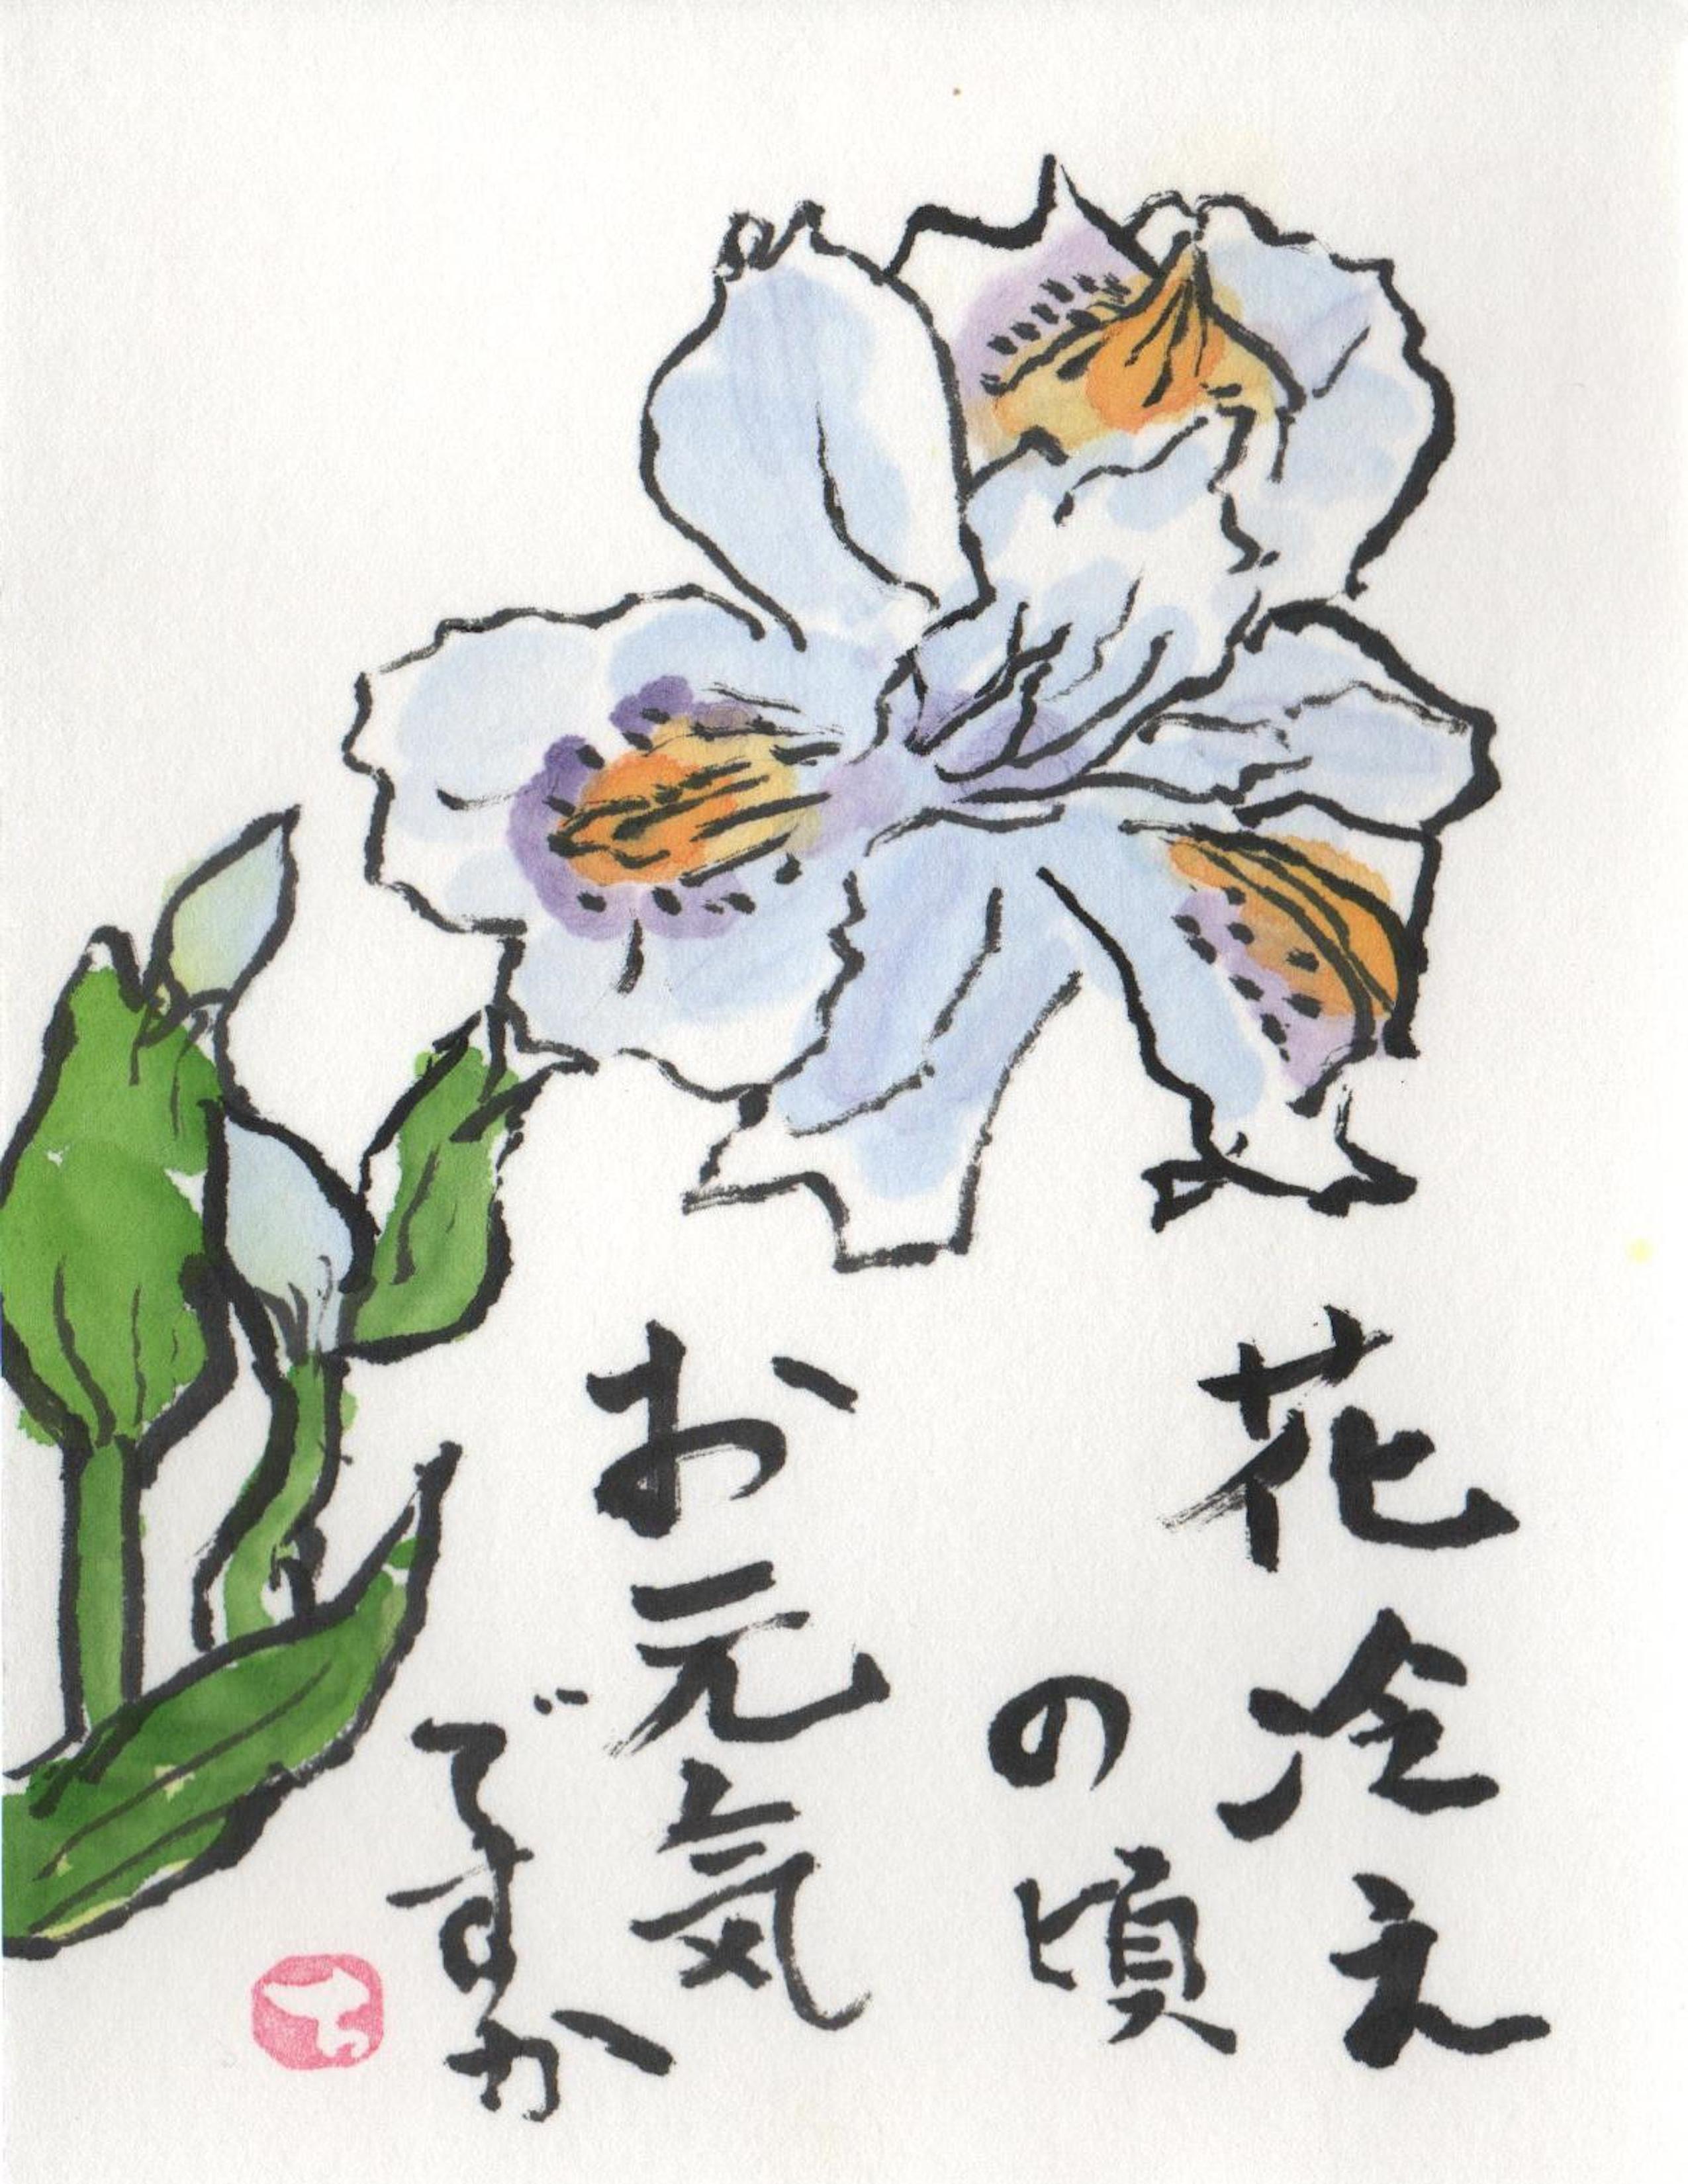 花冷え
の頃
お元気
ですか